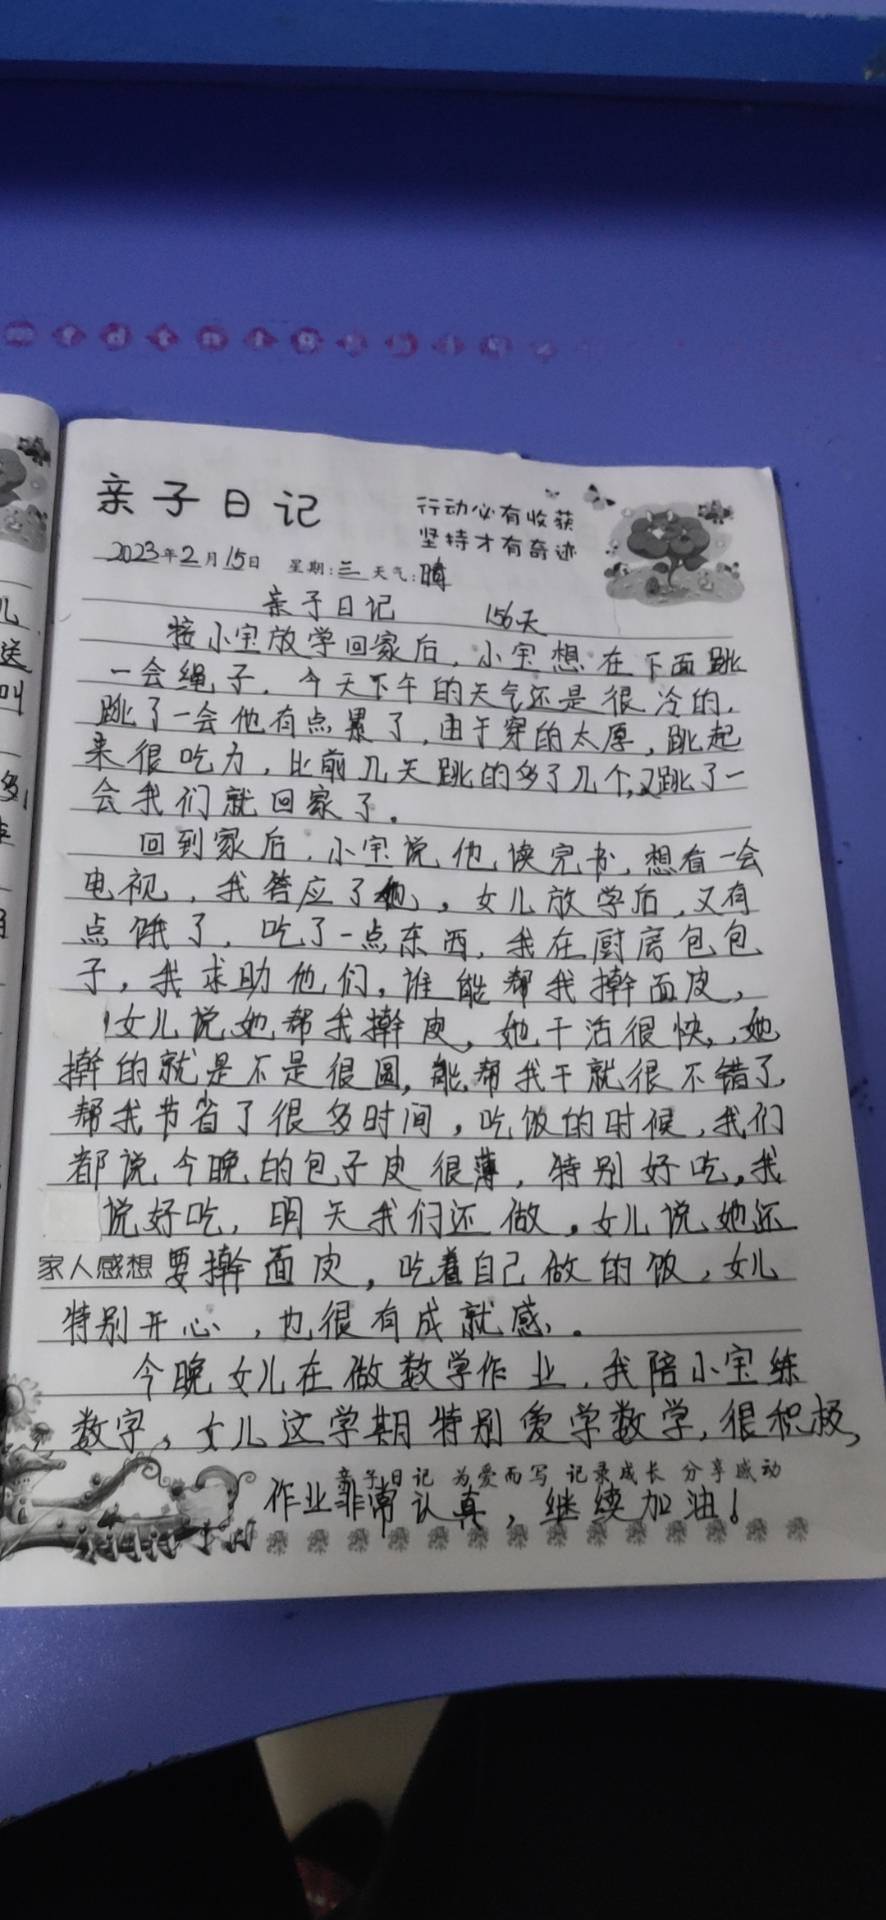 亲子日记
行动必有收获
坚持才有奇迹
2023年2月15日 星期:三 天气:晴
亲子日记 156天
接小宝放学回家后,小宝想在下面跳
一会绳子,今天下午的天气还是很冷的,
跳了一会他有点累了,由于穿的太厚,跳起
来很吃力,比前几天跳的多了几个,又跳了一
会我们就回家了。
回到家后,小宝说他读完书,想看一会
电视,我答应了他,女儿放学后,又有
点饿了,吃了一点东西,我在厨房包包
子,我求助他们,谁能帮我擀面皮,
女儿说她帮我擀皮,她干活很快,她
擀的就是不是很圆,能帮我干就很不错了,
帮我节省了很多时间,吃饭的时候,我们
都说今晚的包子皮很薄,特别好吃,我
说好吃,明天我们还做,女儿说她还
家人感想 要擀面皮,吃着自己做的饭,女儿
特别开心,也很有成就感。
今晚女儿在做数学作业,我陪小宝练
数字,女儿这学期特别爱学数学,很积极,
亲子日记 为爱而写 记录成长 分享感动
作业非常认真,继续加油!
儿
送
叫